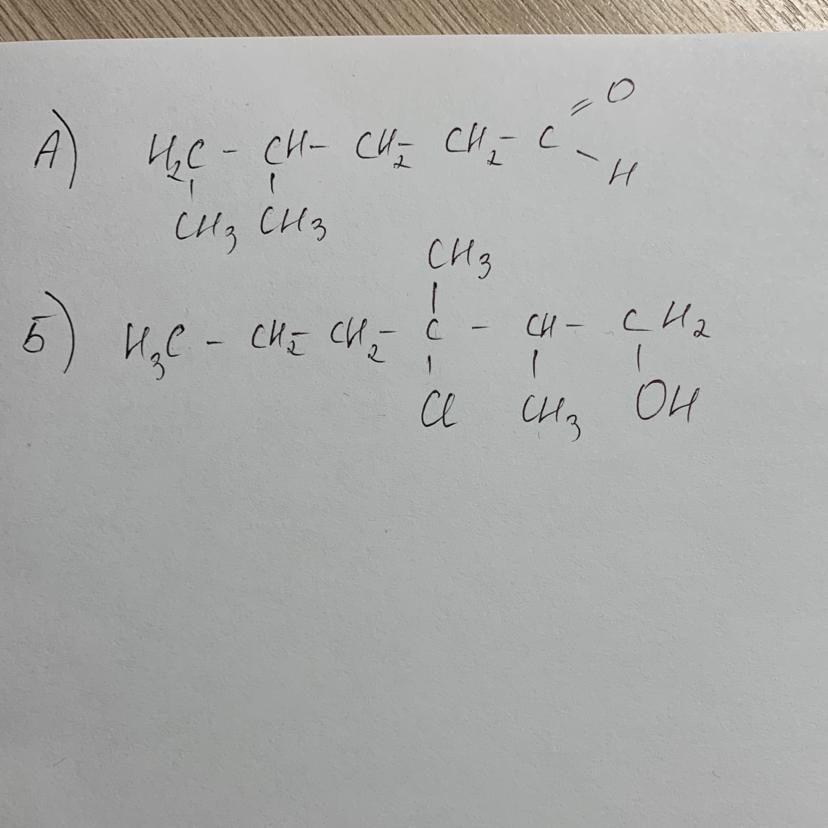 А) H₂C - CH - CH₂ - CH₂ - C =O
- H
CH₃ CH₃
CH₃
Б) H₃C - CH₂ - CH₂ - C - CH - CH₂
Cl CH₃ OH